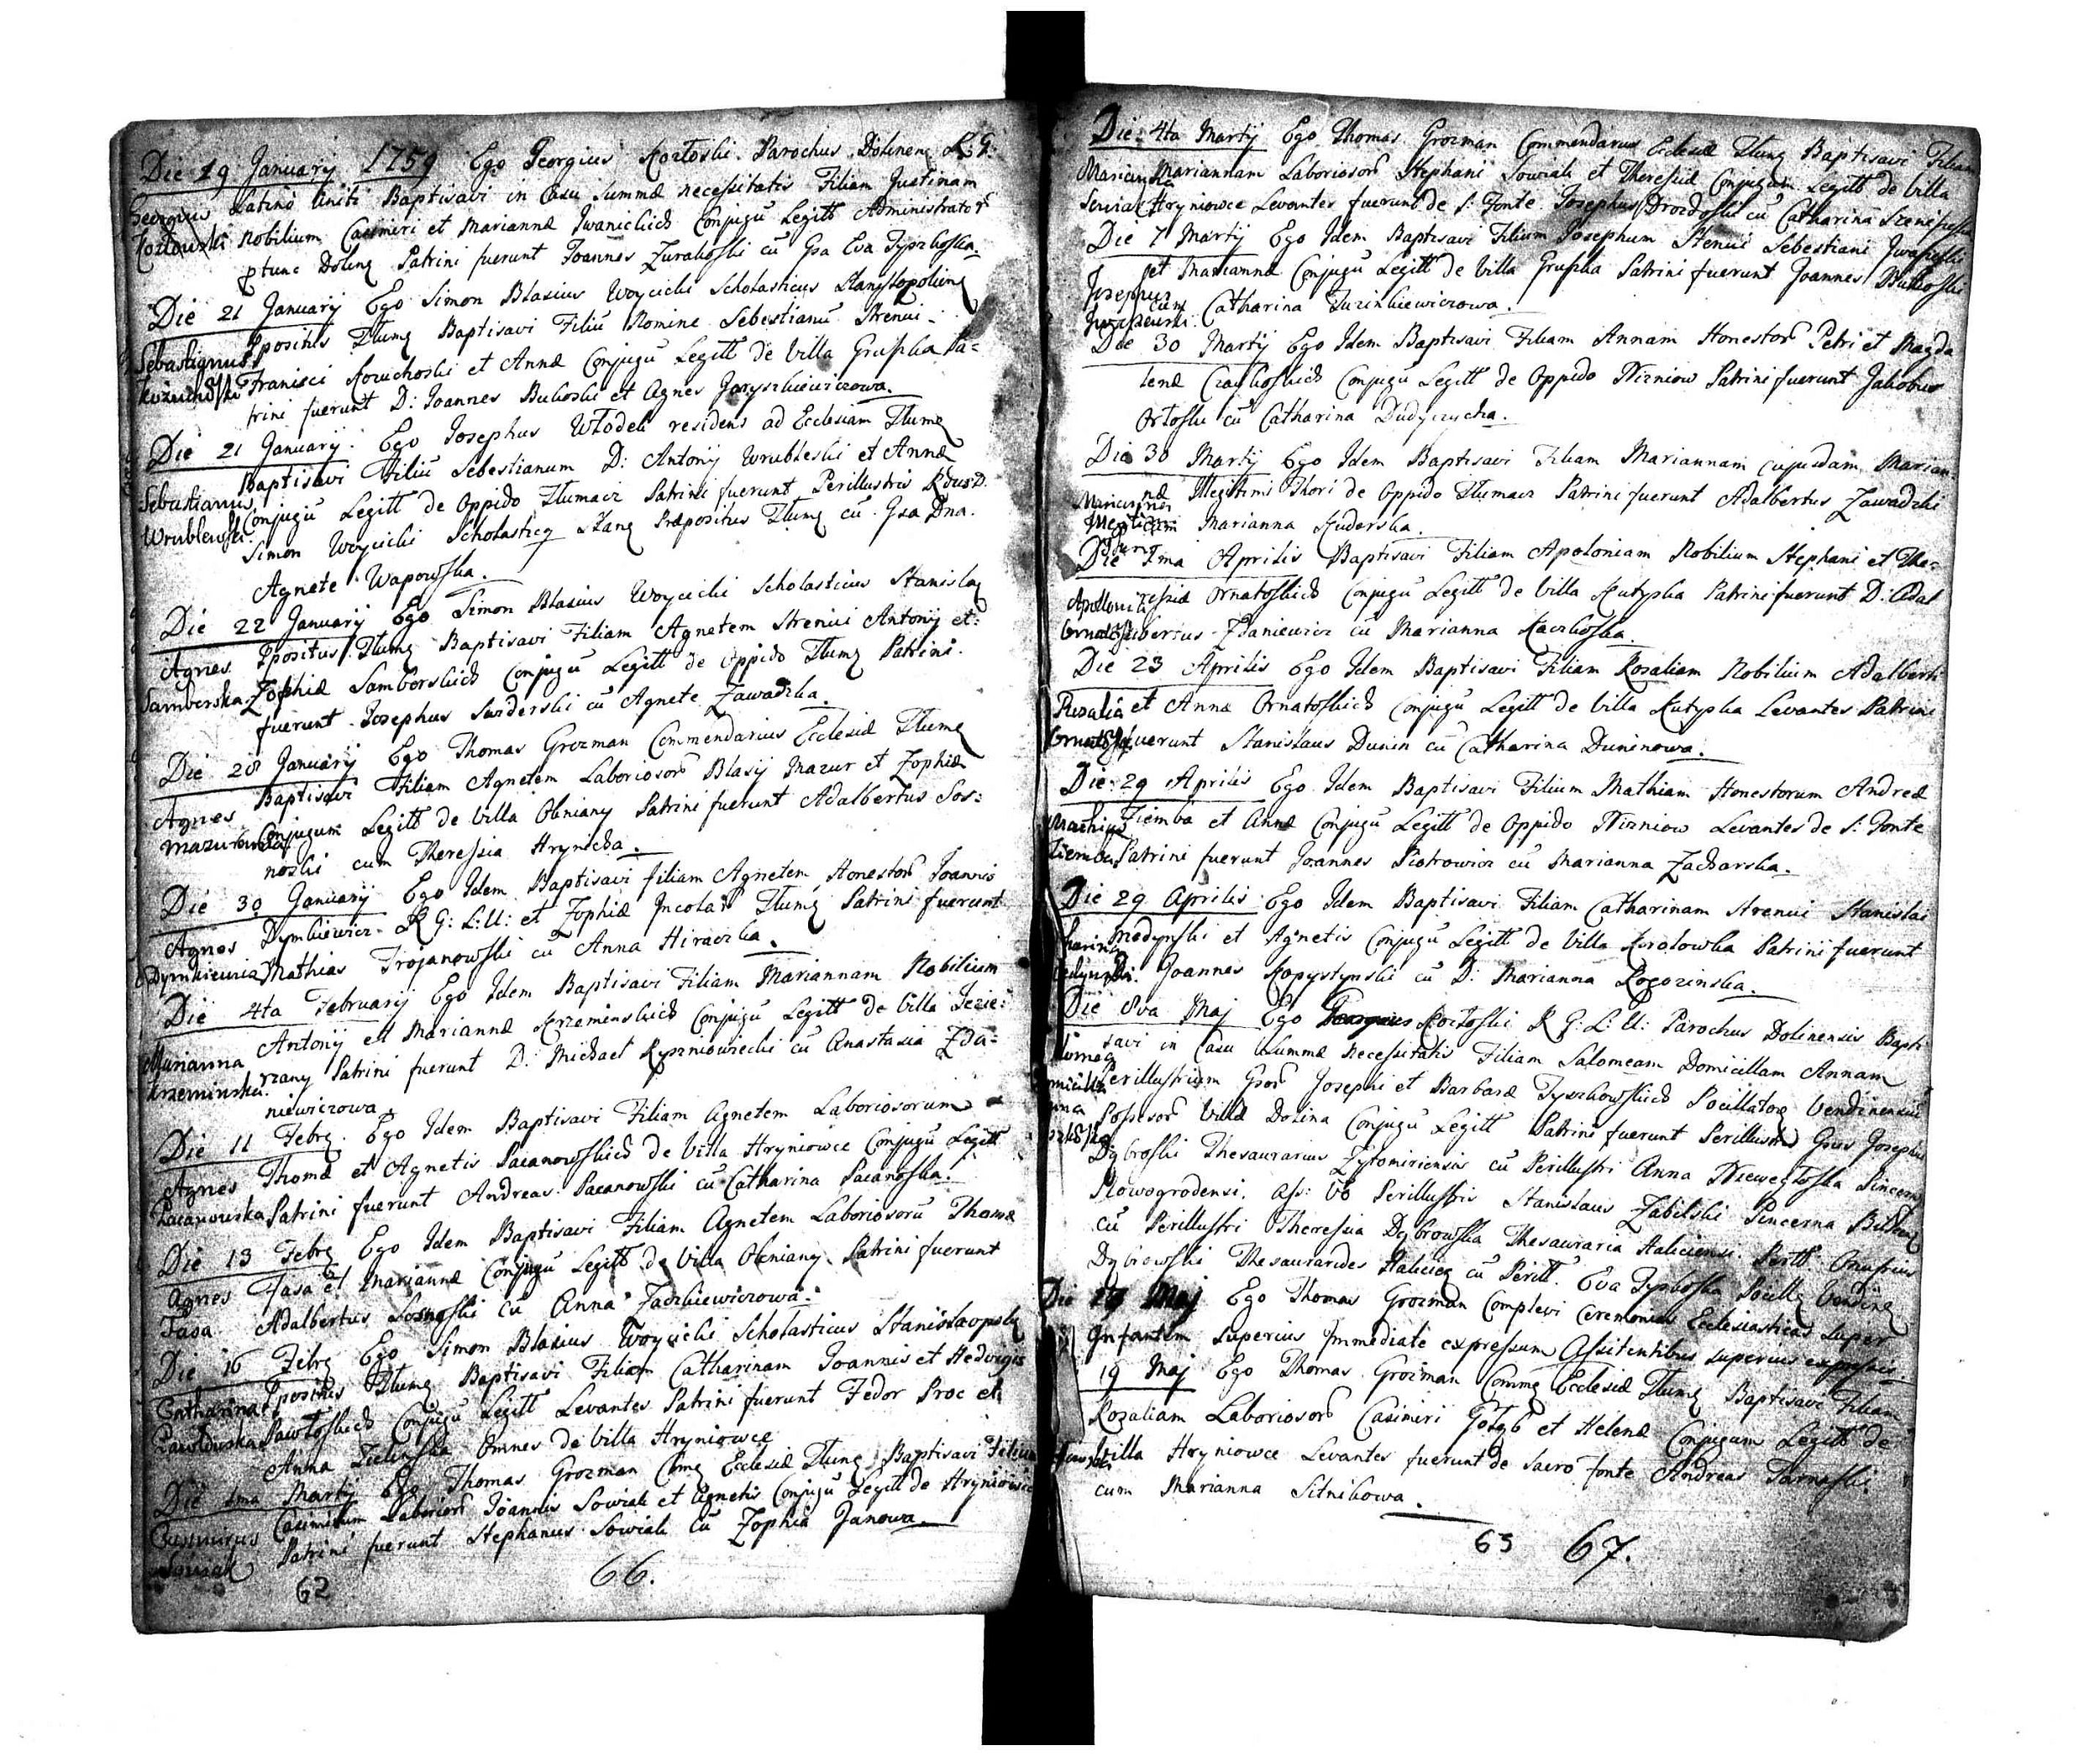 Die 19 January 1759 Ego Georgius Kozłoski Parochus Dolinen R: G:
Georgius Latino Uniti Baptisavi in Casu Summæ necessitatis Filiam Justinam
Kozłowski Nobilium Casimiri et Mariannæ Iwanickich Conjugū Legitt Administrator
ptunc Doling Patrini fuerunt Joannes Zurakoski cū Gsa Eva Tyszkoska
Die 21 January Ego Simon Blasius Woycicki Scholasticus Stanyslopoling
Sebastianus Ppositus Tlumg Baptisavi Filiū Nomine Sebestianū Strenui
Franisci Kozuchoski et Annæ Conjugū Legitt de Villa Gruszka Pa=
trini fuerunt D: Joannes Bukoski et Agnes Jaryszkiewiczowa.
Die 21 January. Ego Josephus Włodek residens ad Ecclesiam Tlumg
Baptisavi Filiū Sebestianum D: Antonij Wrubleski et Annæ
Sebastianus Conjugū Legitt de Oppido Tlumacz Patrini fuerunt Perillustris Rdus D.
Wrublewski Simon Woycicki Scholasticg Stang Præpositus Tlumg cū Gsa Dna.
Agnete Wapowska.
Die 22 January Ego Simon Blasius Woycicki Scholasticus Stanislag
Agnes Ppositus Tlumg Baptisavi Filiam Agnetem Strenui Antonij et
Samborska Zophiæ Samborskich Conjugū Legitt de Oppido Tlumg Patrini
fuerunt Josephus Swiderski cū Agnete Zawadzka.
Die 28 January Ego Thomas Grozman Commendarius Ecclesiæ Tlumg
Baptisavi Filiam Agnetem Laboriosor Blasij Mazur et Zophiæ
Agnes Conjugum Legitt de Villa Okniany Patrini fuerunt Adalbertus Sos=
noski cum Theressia Hrynicka.
Die 30 January Ego Idem Baptisavi filiam Agnetem Honestor Joannis
Agnes Dymkiewicz R G: L: U: et Zophiæ Incolar Tlumg Patrini fuerunt
Mathias Trojanowski cū Anna Hiraczka.
Die 4ta February Ego Idem Baptisavi Filiam Mariannam Nobilium
Antonij et Mariannæ Krzeminskich Conjugū Legitt de Villa Jezie=
Marianna rzany Patrini fuerunt D: Michael Ryszniowiecki cū Anastasia Zda=
Krzeminska. niewiczowa
Die 11 Febrg. Ego Idem Baptisavi Filiam Agnetem Laboriosorum
Agnes Thomæ et Agnetis Pacanowskich de Villa Hryniowce Conjugū Legitt
Pacanowska Patrini fuerunt Andreas Pacanowski cū Catharina Pacanoska.
Die 13 Febrg Ego Idem Baptisavi Filiam Agnetem Laboriosorū Thomæ
Agnes Fasa et Mariannæ Conjugū Legitt de Villa Okniany Patrini fuerunt
Fasa Adalbertus Sosnoski cū Anna Jaczkiewiczowa.
Die 16 Febrg Ego Simon Blasius Woycicki Scholasticus Stanislaopolg
Catharina Ppositus Tlumg Baptisavi Filiam Catharinam Joannis et Hedvigis
Pawłoskich Conjugū Legitt Levantes Patrini fuerunt Fedor Proc et
Anna Zielinska Omnes de Villa Hryniowce
Die 1ma Martij Ego Thomas Grozman Cõmg Ecclesiæ Tlumg Baptisavi Filium
Casimirus Casimirum Laborior Joannis Sowiak et Agnetis Conjugū Legitt de Hryniowce
Sowiak Patrini fuerunt Stephanus Sowiak cū Zophia Janowa.
62 66.
Die 4ta Martij Ego Thomas Grozman Commendarius Ecclesiæ Tlumg Baptisavi Filiam
Marianna Mariannam Laboriosor Stephani Sowiak et Theressiæ Conjugum Legitt de Villa
Hryniowce Levantes fuerunt de S: Fonte Josephus Drozdoski cū Catharina
Die 7 Martij Ego Idem Baptisavi Filium Josephum Strenui Sebestiani
et Mariannæ Conjugū Legitt de Villa Gruszka Patrini fuerunt Joannes Bukoski
Josephus cum Catharina Turinkiewiczowa.
Die 30 Martij Ego Idem Baptisavi Filiam Annam Honestor Petri et Magda
lenæ Czaykoskich Conjugū Legitt de Oppido Nizniow Patrini fuerunt Jakobus
Ortoski cū Catharina Dudyczycha.
Die 30 Martij Ego Idem Baptisavi Filiam Mariannam cujusdam Marian
næ Illegitimi Thori de Oppido Tlumacz Patrini fuerunt Adalbertus Zawadzki
Marianna Kuderska.
Die 1ma Aprilis Baptisavi Filiam Apoloniam Nobilium Stephani et The=
Apollonia ressiæ Ornatoskich Conjugū Legitt de Villa Kutyska Patrini fuerunt D: Adal
bertus Zdaniewicz cū Marianna Kaczkoska.
Die 23 Aprilis Ego Idem Baptisavi Filiam Rozaliam Nobilium Adalberti
Rozalia et Annæ Ornatoskich Conjugū Legitt de Villa Kutyska Levantes Patrini
fuerunt Stanislaus Dunin cū Catharina Duninowa.
Die 29 Aprilis Ego Idem Baptisavi Filium Mathiam Honestorum Andreæ
Mathias Ziemba et Annæ Conjugū Legitt de Oppido Nizniow Levantes de S: Fonte
Ziemba Patrini fuerunt Joannes Piotrowicz cū Marianna Zacharska.
Die 29 Aprilis Ego Idem Baptisavi Filiam Catharinam Strenui Stanislai
Modynski et Agnetis Conjugū Legitt de Villa Krolowka Patrini fuerunt
D: Joannes Kopystynski cū D: Marianna Rogozinska.
Die 8va Maj Ego Georgius Kozłoski R G: L: U: Parochus Dolinensis Bapti
savi in Casu Summæ necessitatis Filiam Salomeam Domicillam Annam
Perillustrium Gsor Josephi et Barbaræ Tyszkowskich Pocillatorg Vendinensiū
Possessor Villæ Dolina Conjugū Legitt Patrini fuerunt Perillustris Gsus Josephus
Dębroski Thesaurarius Zytomiriensis cū Perillustri Anna Nieweglos­ka Pincerng
Nowogrodensi. Ass: Vo Perillustris Stanislaus Zabilski Pincerna
cū Perillustri Theressia Dębrowska Thesauraria Haliciensi. Perill: Onufrius
Dębrowski Thesaurarides Halicieg cū Perill: Eva Tyszkoska Pocillg Vending
Die 19 Maj Ego Thomas Grozman Complevi Ceremonias Ecclesiasticas super
Infantem superius Immediate expressum Assistentibus superius expressis
19 Maj Ego Thomas Grozman Commg Ecclesiæ Tlumg Baptisavi Filiam
Rozaliam Laboriosor Casimiri Gołąb et Helenæ Conjugum Legitt de
Villa Hryniowce Levantes fuerunt de Sacro fonte Andreas Tarnoski
cum Marianna Sitnikowa.
63 67.